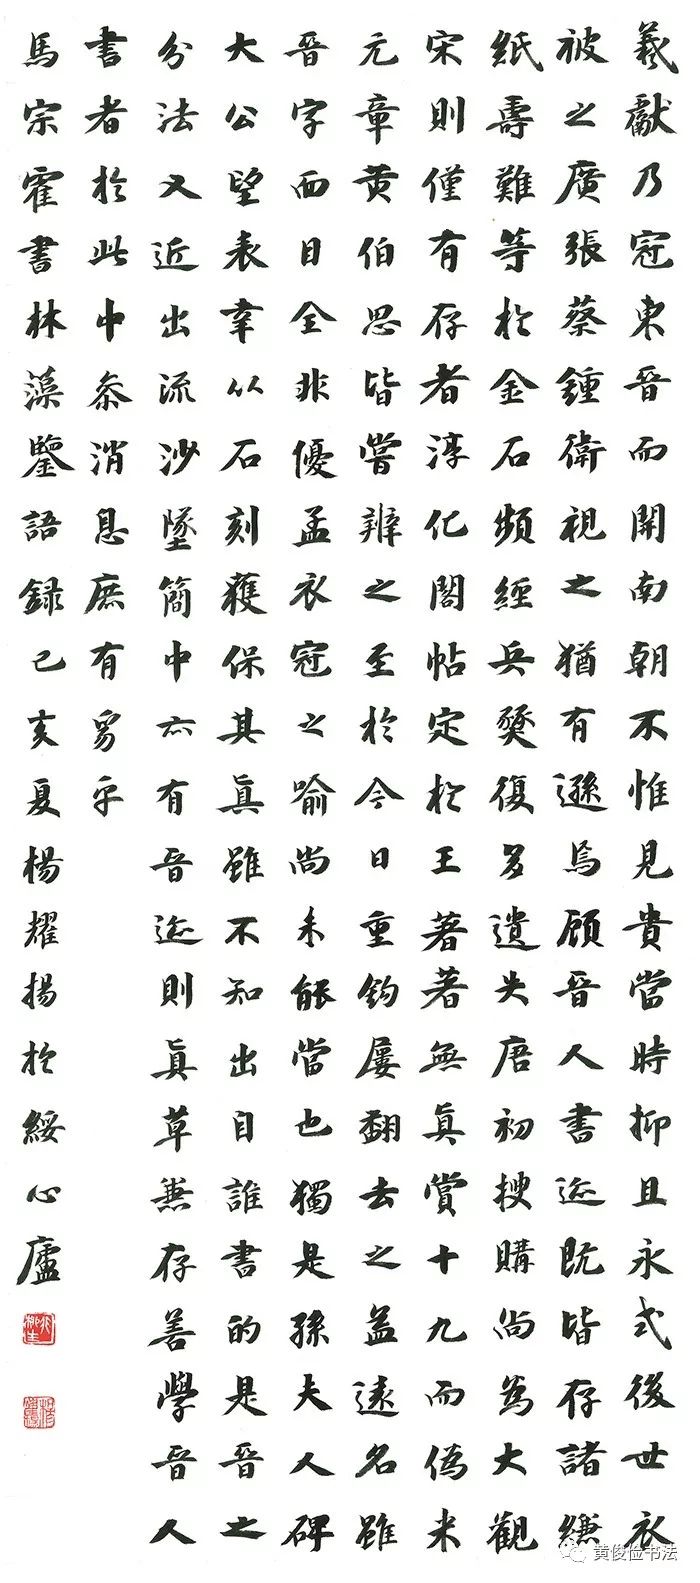 羲獻乃冠東晉而開南朝不惟見貴當時抑且永式後世衣
被之廣張蔡鍾衛視之猶有遜焉顧晉人書迹既皆存諸縑
紙壽難等於金石頻經兵燹復多遺失唐初搜購尚為大觀
宋則僅有存者淳化閣帖定於王著著無真賞十九而偽米
元章黄伯思皆嘗辨之至於今日重鈎屢翻去之益遠名雖
晉字面目全非優孟衣冠之喻尚未能當也獨是孫夫人碑
大公望表幸以石刻獲保其真雖不知出自誰書的是晉之
分法又近出流沙墜簡中亦有晉迹則真草兼存善學晉人
書者於此中叅消息庶有豸乎
馬宗霍書林藻鑒語録己亥夏楊耀揚於綏心廬
黄俊俭书法